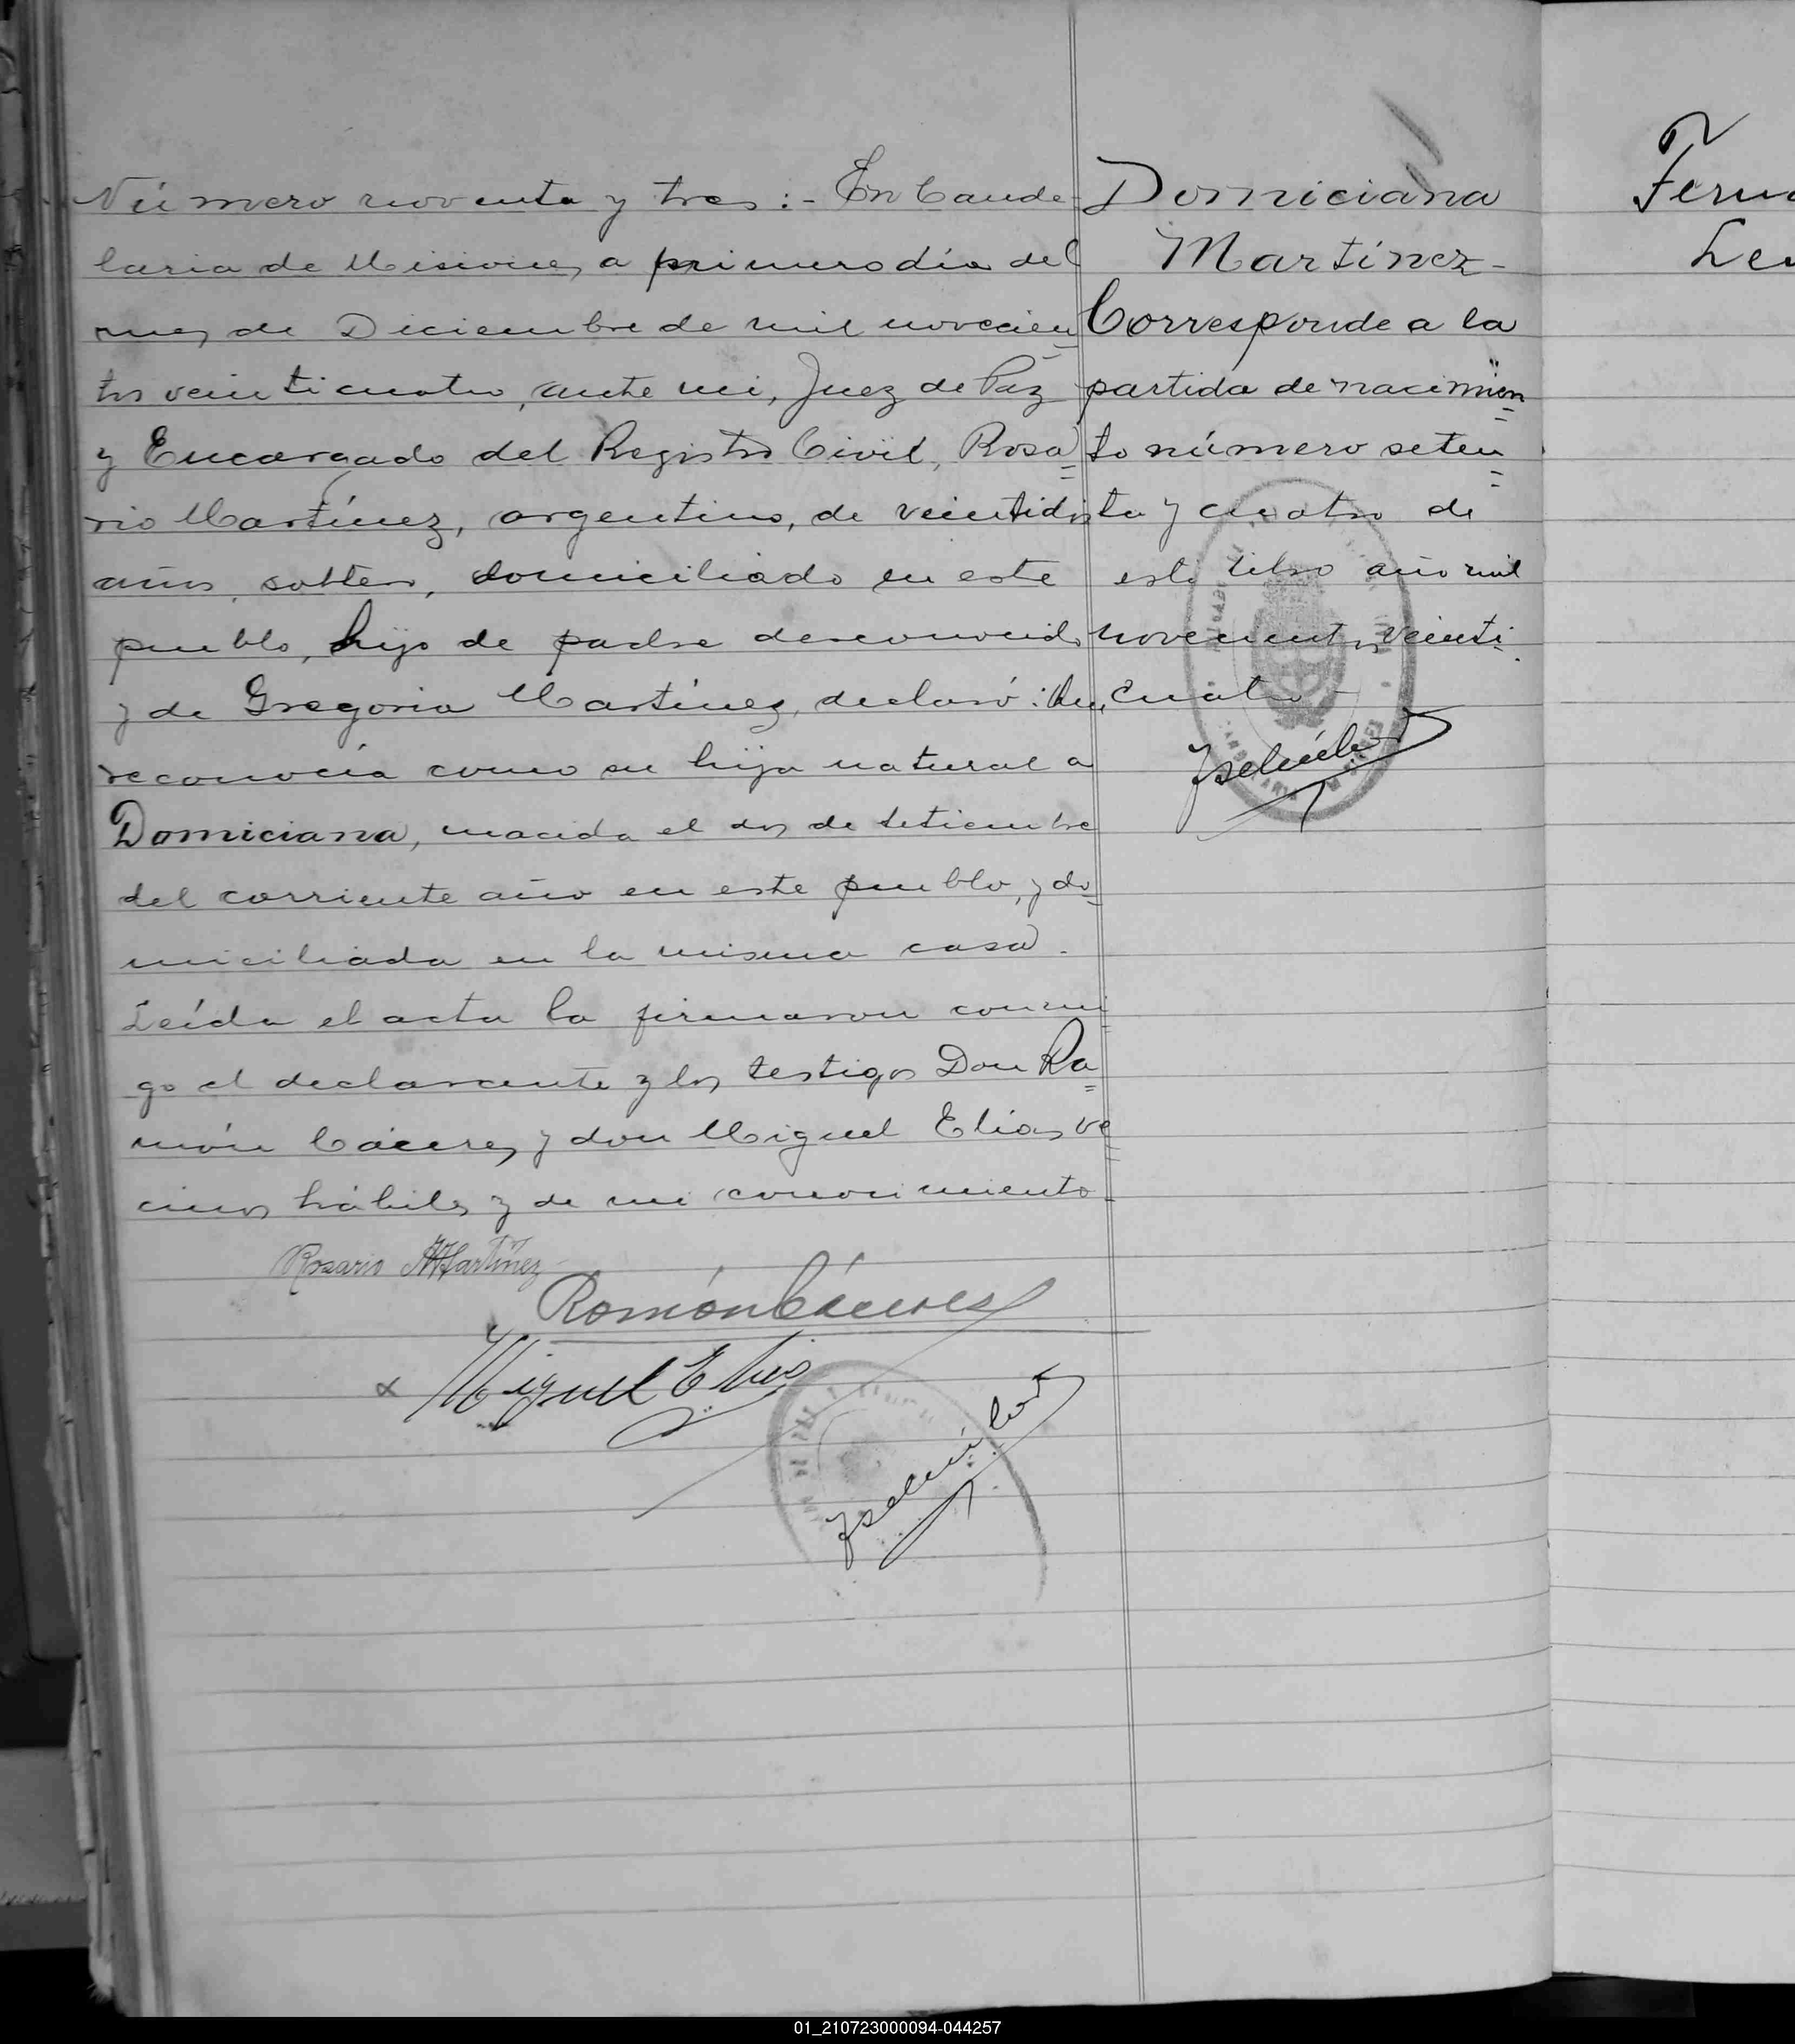 Número noventa y tres:- En Cande-
laria de Misiones, a primero día del
mes de Diciembre de mil novecien=
tos veinticuatro, ante mi, Juez de Paz
y Encargado del Registro Civil, Rosa=
rio Martínez, argentino, de veintidos
años, soltero, domiciliado en este
pueblo, hijo de padre desconocido
y de Gregoria Martínez, declaró: Que
reconocía como su hija natural a
Domiciana, nacida el dos de Setiembre
del corriente año en este pueblo, y do=
miciliada en la misma casa.
Leída el acta la firmaron conmi
go el declarante y los testigos Don Ra=
món Cáceres y don Miguel Elías ve
cinos hábiles y de mi conocimiento-
Rosario Martínez
Ramón Cáceres
Miguel Elias
Domiciana
Martínez-
Corresponde a la
partida de nacimien=
to número seten=
ta y cuatro de
este libro año mil
novecientos veinti
cuatro-
Fern
Le
01_210723000094-044257